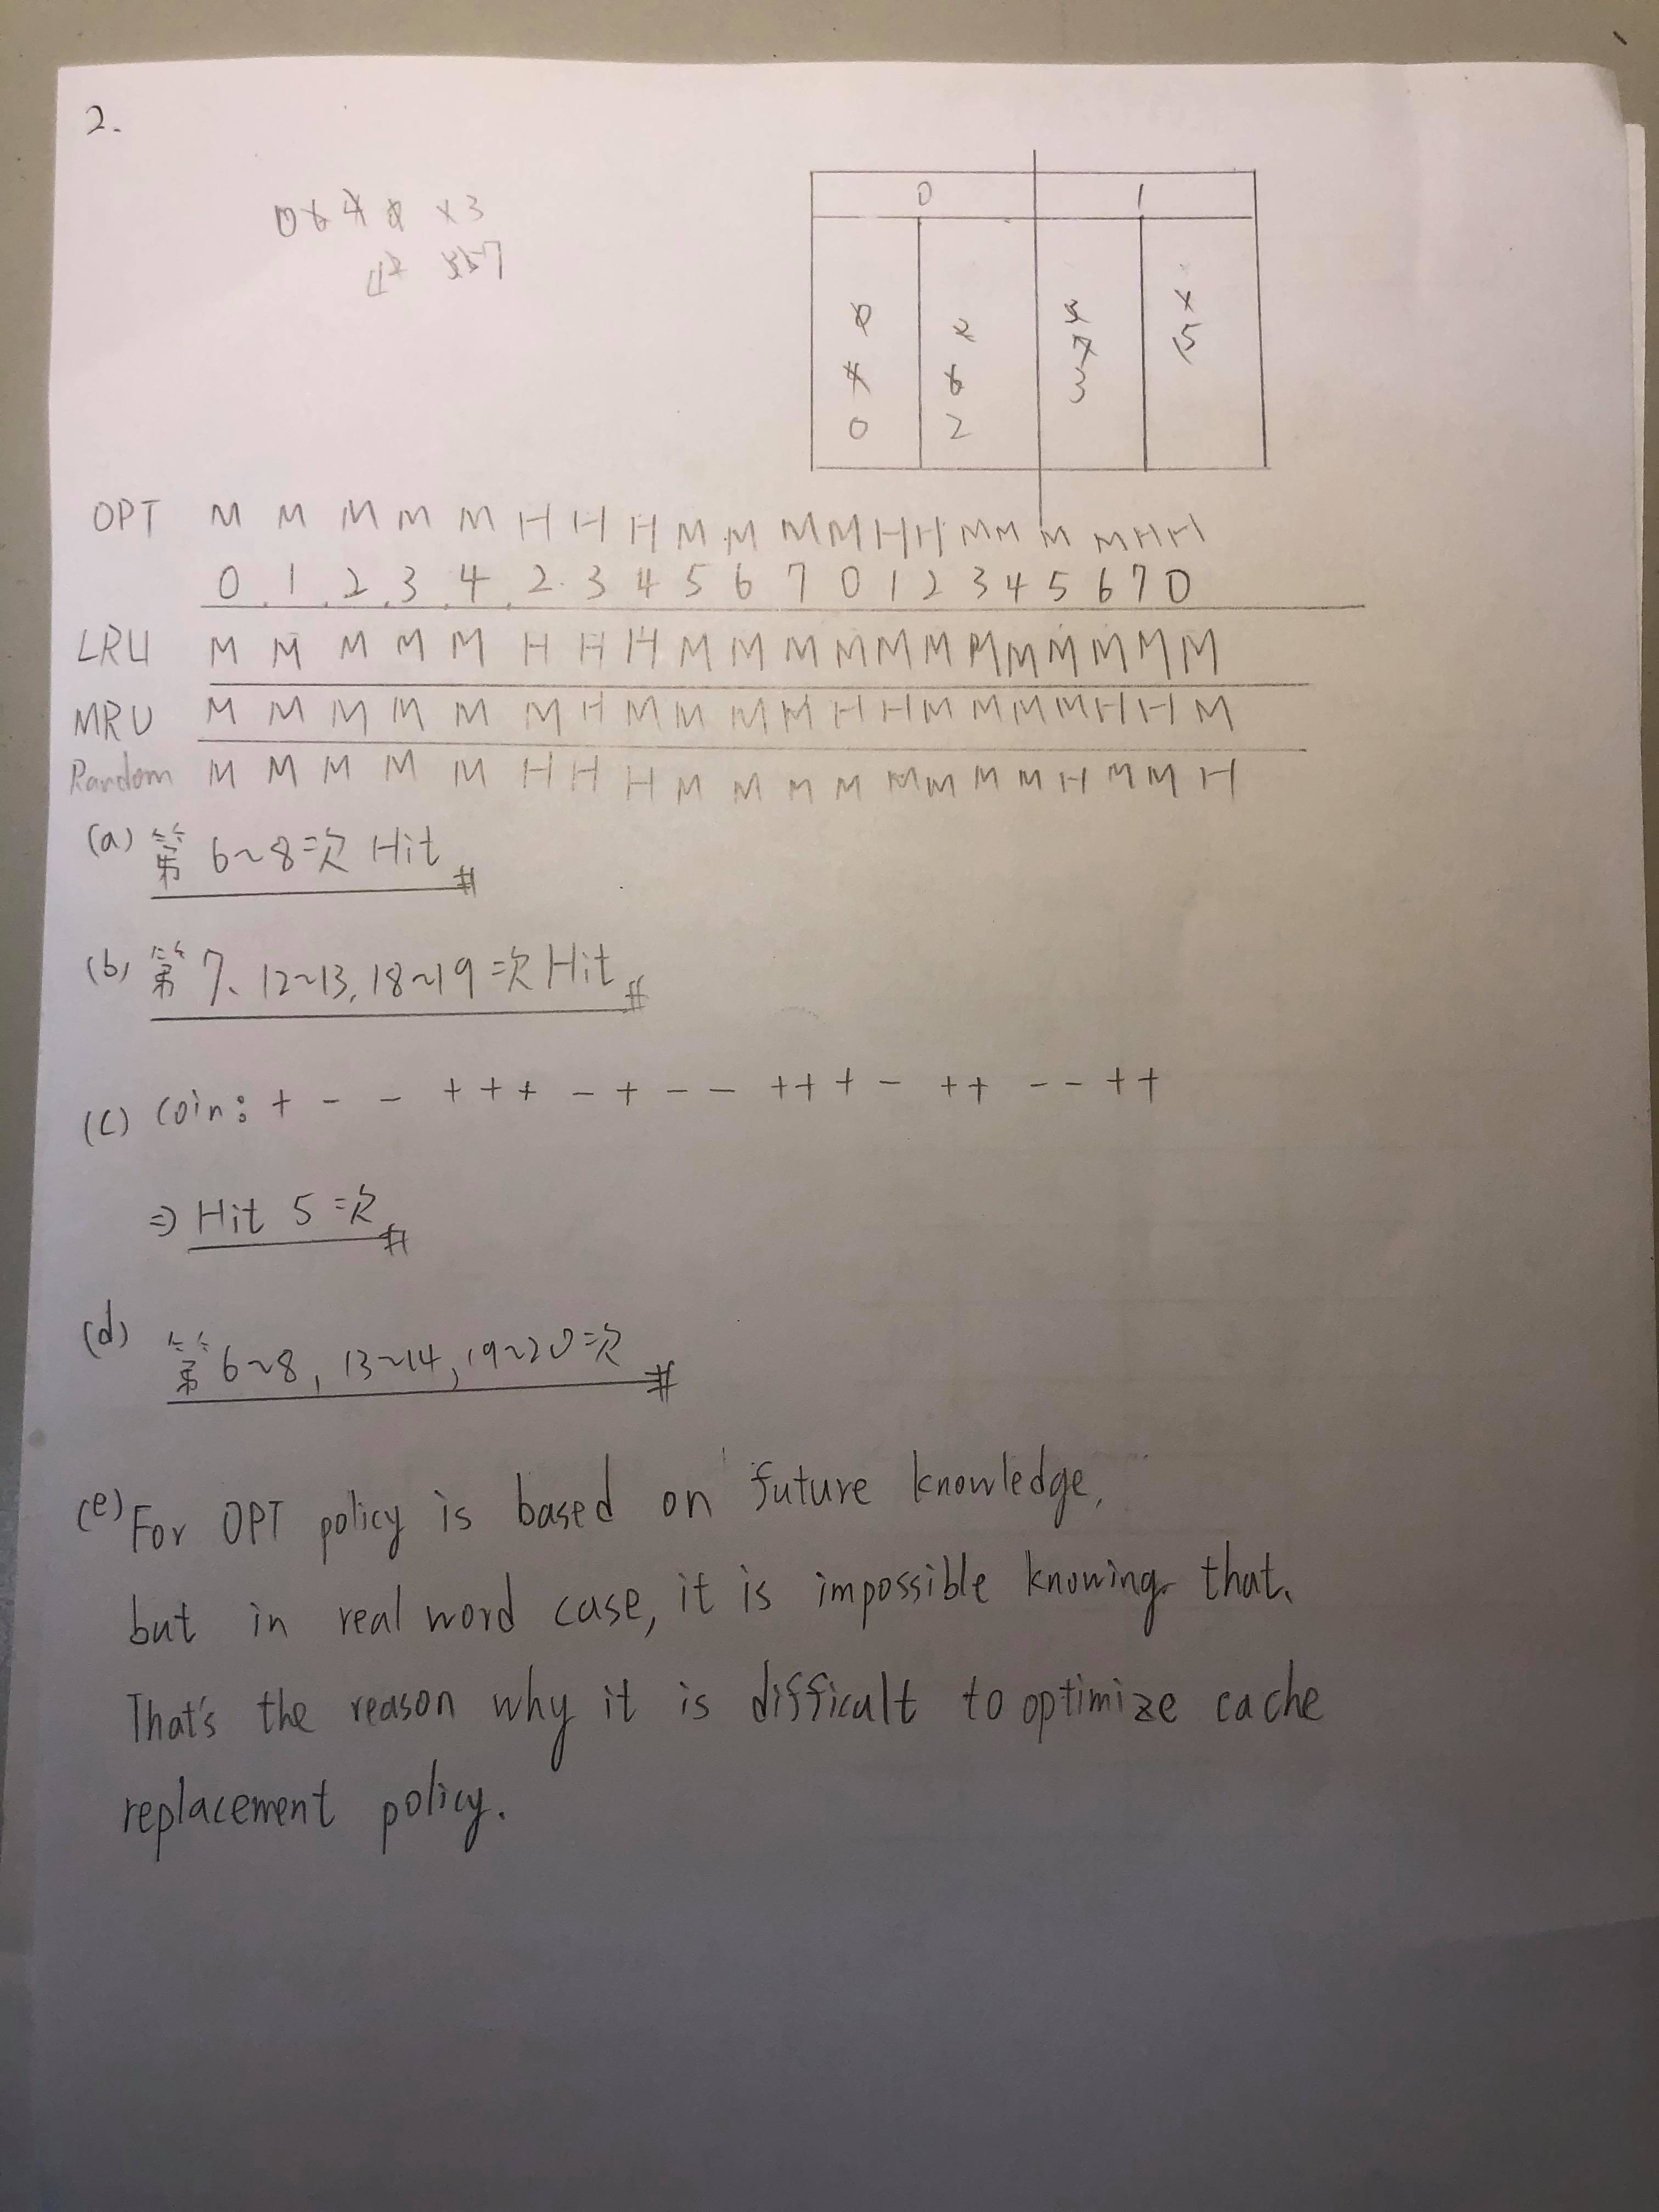 2.
0 1
3
7
0 2
3
5
OPT M M M M M H H H M M M M H H M M M M H H
0 1 2 3 4 2 3 4 5 6 7 0 1 2 3 4 5 6 7 0
LRU M M M M M H H H M M M M M M M M M M M M
MRU M M M M M M H M M M M H H M M M M H H M
Random M M M M M H H H M M M M M M M M H M M H
(a) 第 6~8次 Hit #
(b) 第 7、12~13, 18~19次 Hit #
(c) Coin: + - - + + + - + - - + + + - + + - - + +
⇒ Hit 5次 #
(d) 第 6~8, 13~14, 19~20次 #
(e) For OPT policy is based on future knowledge,
but in real word case, it is impossible knowing that.
That's the reason why it is difficult to optimize cache
replacement policy.